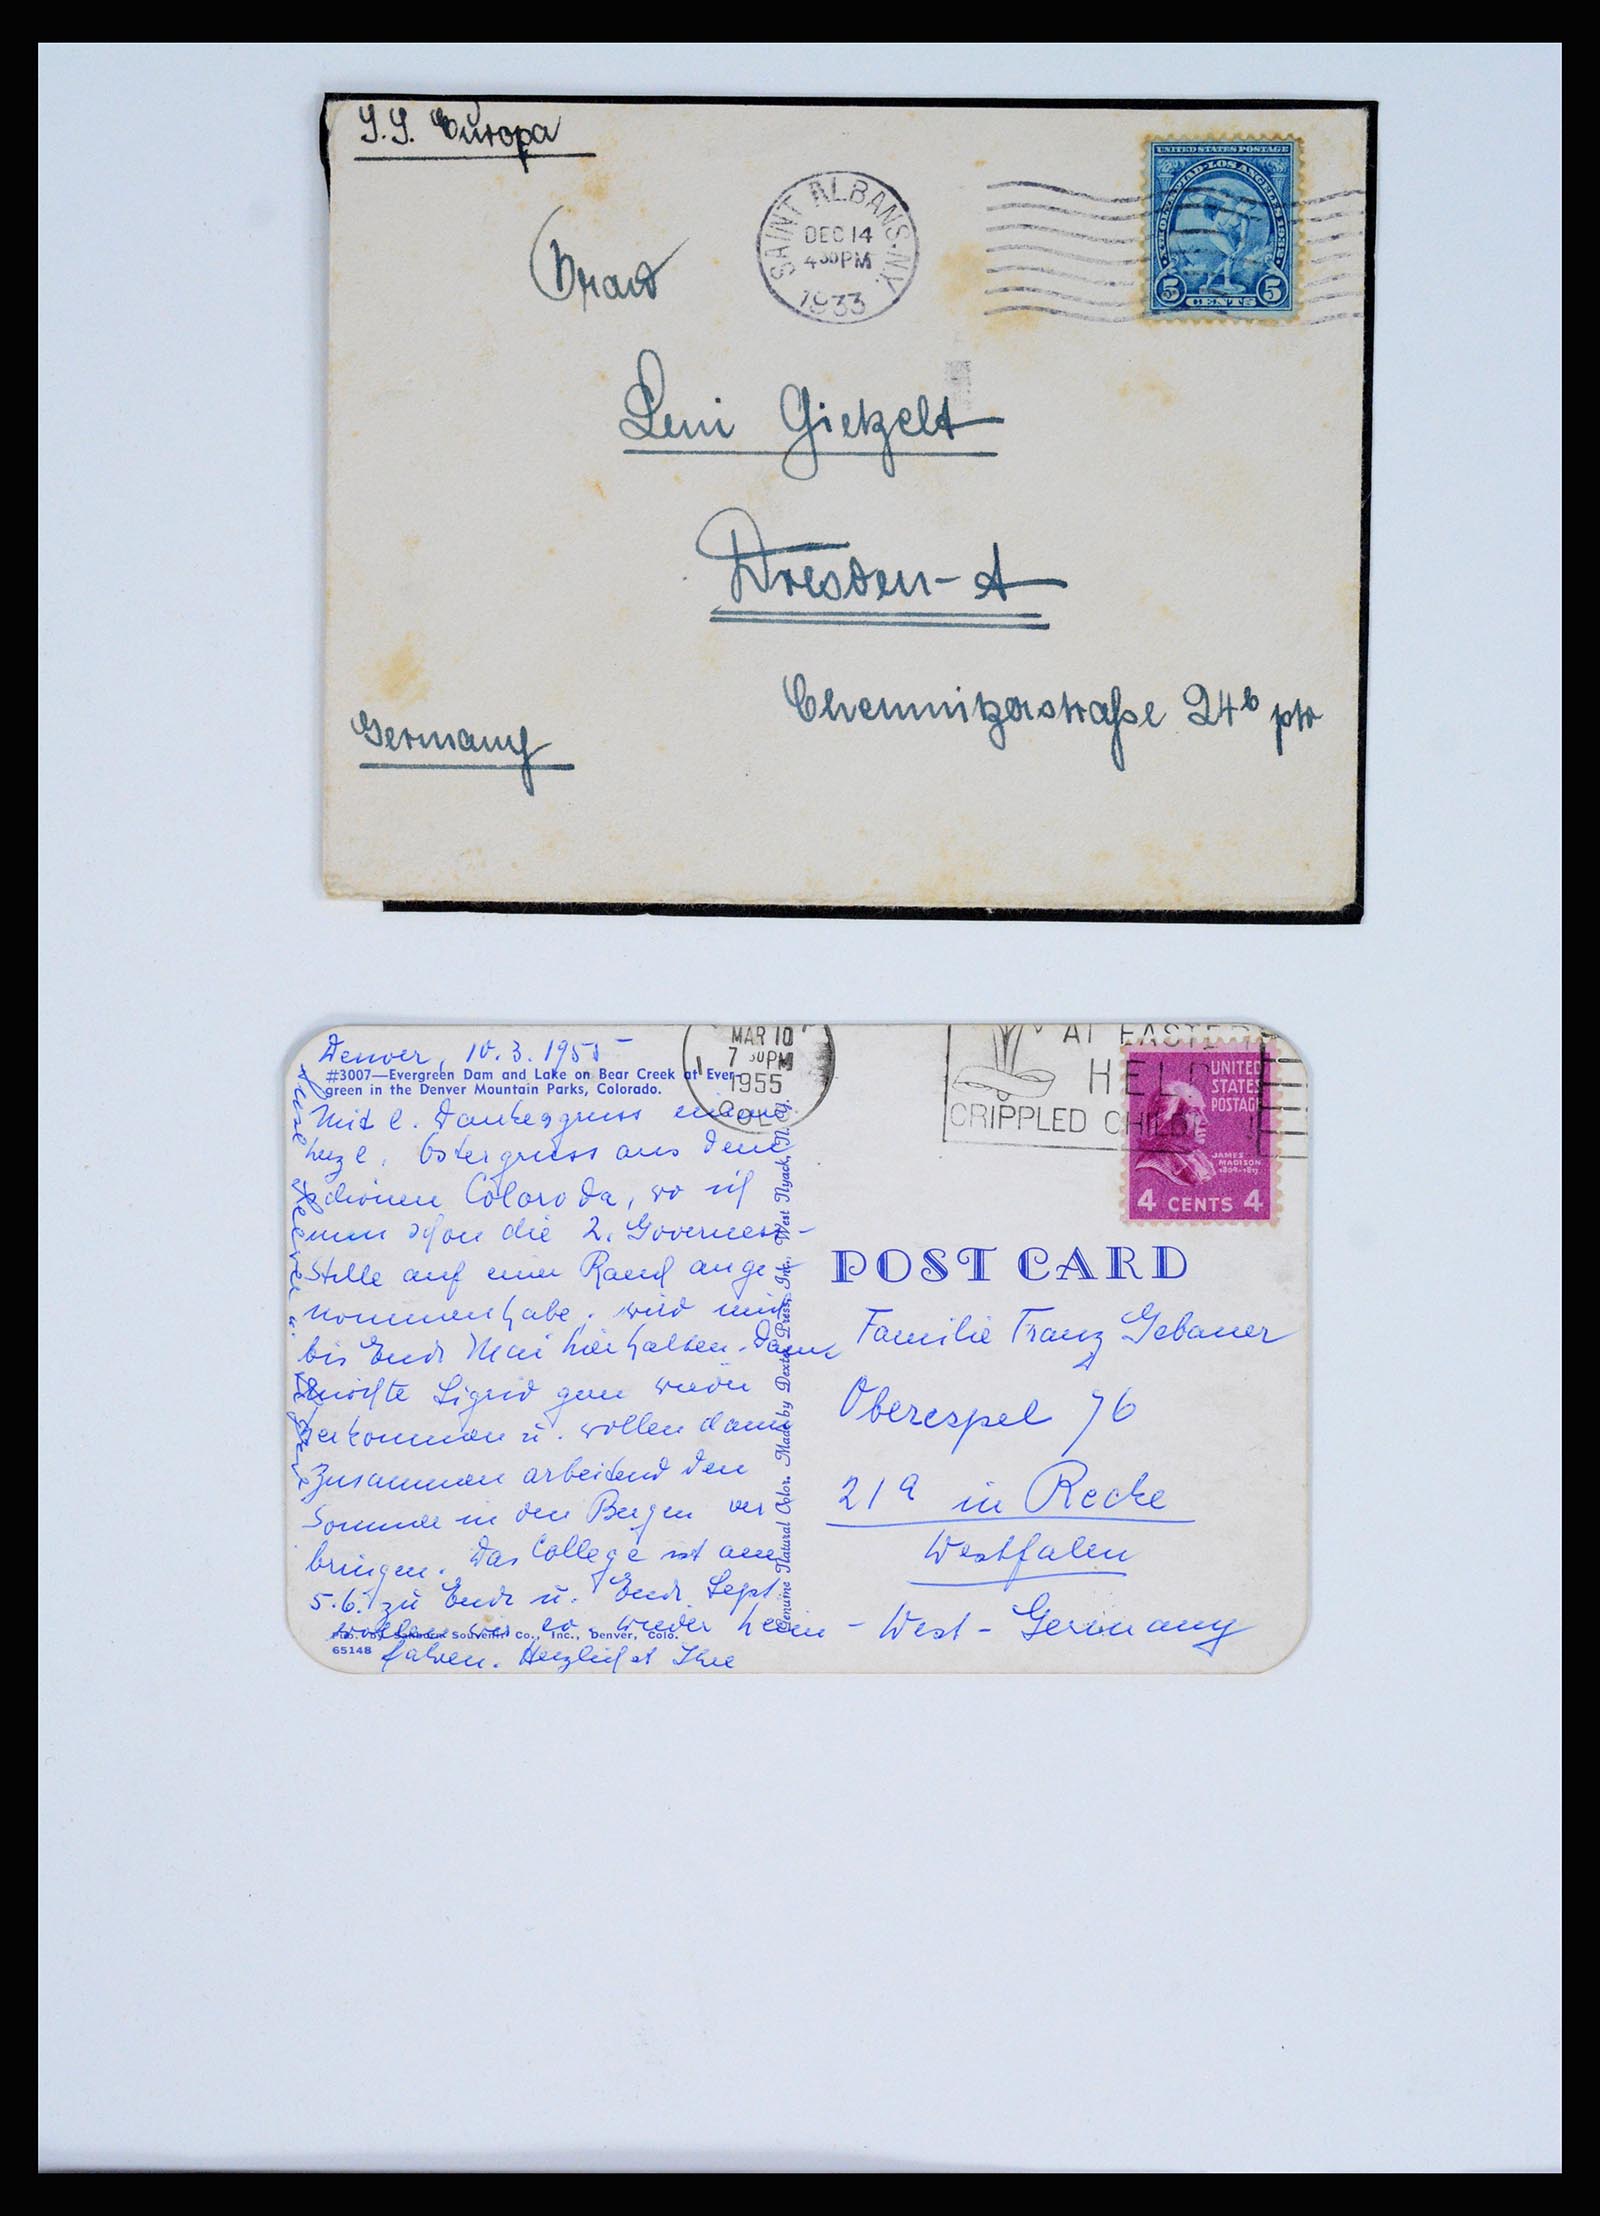 S.S. Europa
SAINT ALBANS, N.Y.
DEC 14
4 30 PM
1933
UNITED STATES POSTAGE
Xth OLYMPIAD-LOS ANGELES 1932
5 CENTS 5
Leni Gietzelt
Dresden-A
Chemnitzerstraße 24b ptr
Germany
Denver, 10.3.1955
#3007—Evergreen Dam and Lake on Bear Creek at Ever-
green in the Denver Mountain Parks, Colorado.
Mit l. Dankesgruss einen
herzl. Ostergruss aus dem
schönen Colorado, wo ich
nun schon die 2. Governess-
Stelle auf einer Ranch ange-
nommen habe. wird mich
bis Ende Mai hier halten. Dann
möchte Sigrid gern wieder
herkommen u. wollen dann
zusammen arbeitend den
Sommer in den Bergen ver
bringen. Das College ist am
5.6. zu Ende u. Ende Sept.
wollen wir so wieder heim-
fahren. Herzlichst Ihre
Souvenir Co., Inc., Denver, Colo.
65148
Genuine Natural Color. Made by Dexter Press, Inc., West Nyack, N.Y.
MAR 10
7 30 PM
1955
COLO
AT EASTER
HELP
CRIPPLED CHILD
UNITED
STATES
POSTAGE
JAMES
MADISON
1809-1817
4 CENTS 4
POST CARD
Familie Franz Gebauer
Oberespel 76
21a in Recke
Westfalen
West-Germany